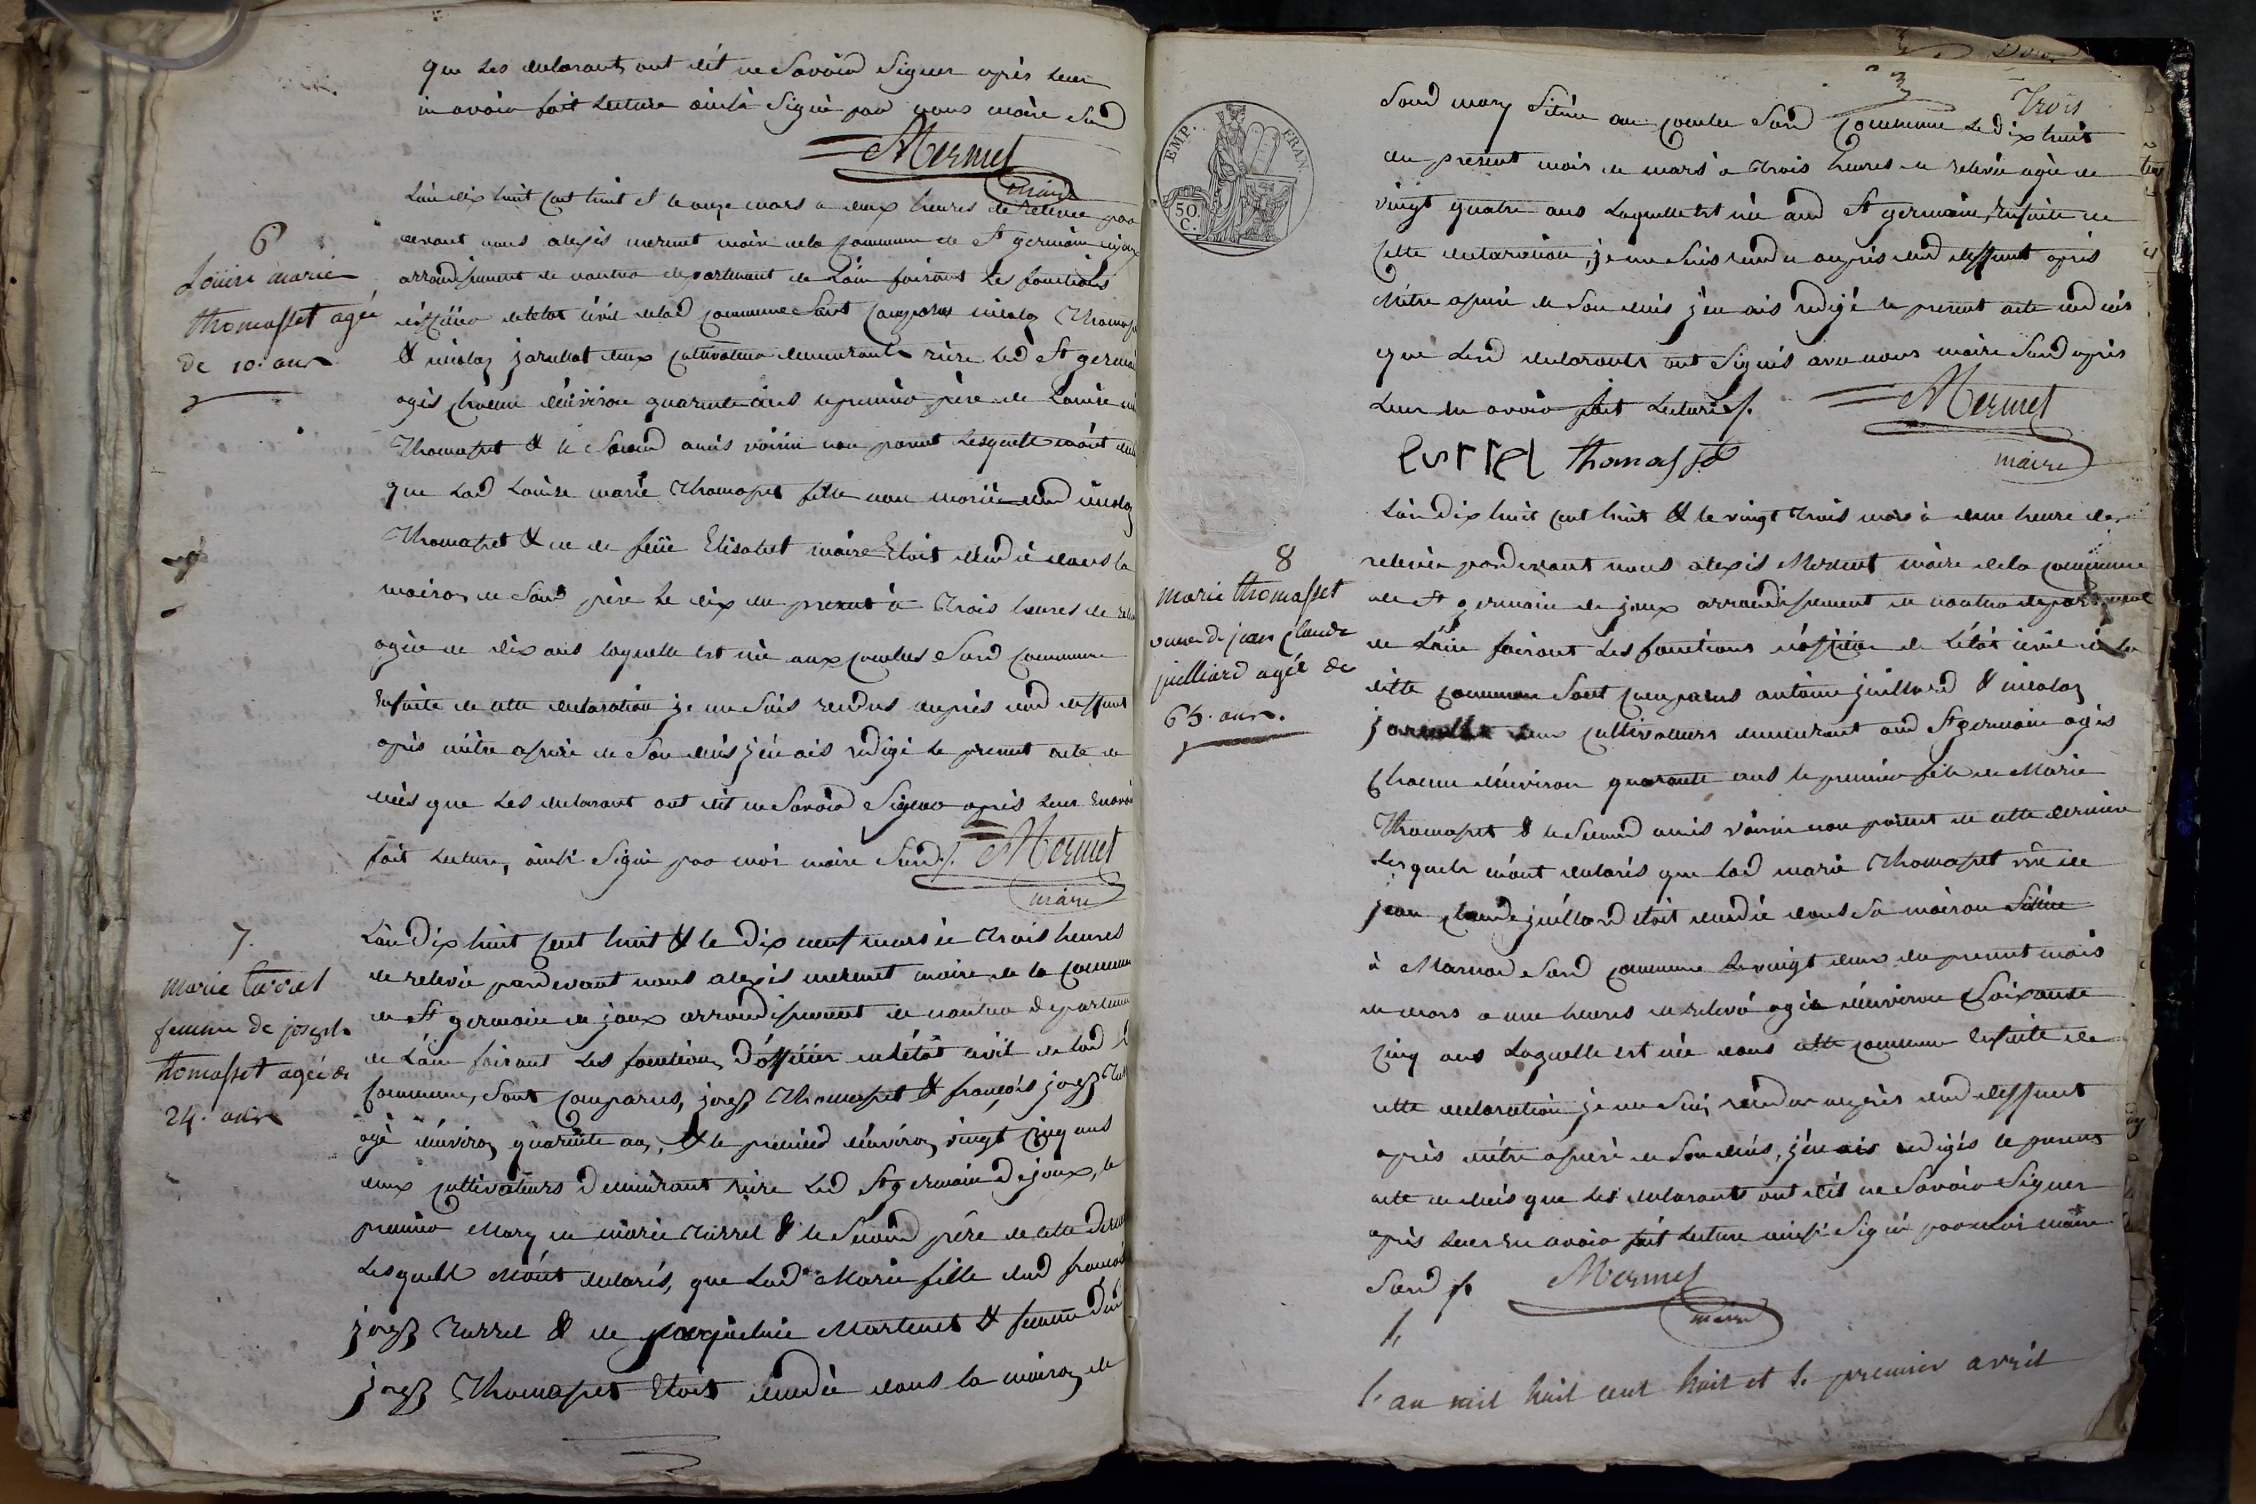 que les declarants ont dit ne savoir signer après leur
en avoir fait lecture ainsi signé par nous maire susd
Mermet
maire
6
Louise marie
thomasset agée
de 10. ans
L'an dix huit cent huit & le onze mars a deux heures de relevée par
devant nous alexis mermet maire de la commune de St germain de joux
arrondissement de nantua departement de L'ain faisant les fonctions
d'officier de l'etat civil de lad commune sont comparus nicolas Thomasset
& nicolas jarullat deux cultivateurs demeurants rière led St germain
agés chacun d'environ quarante ans le premier père de Louise marie
Thomasset & le second amis voisin non parent lesquels m'ont declaré
que lad Louise marie Thomasset fille non mariée dud nicolas
Thomasset & de feüe Elisabet maire Etoit decedée dans la
maison de sond père le dix du present à trois heures de relevée
agée de dix ans laquelle est née aux coombes sud commune
Ensuite de cette declaration je me suis rendus auprès dud deffunt
après m'être assuré de son decès j'en ais redigé le present acte de
decès que les declarant ont dit ne savoir signer après leur En avoir
fait lecture, ainsi signé par moi maire susd
Mermet
maire
7.
marie turrel
femme de joseph
thomasset agée de
24. ans
L'an dix huit cent huit & le dix neuf mars à trois heures
de relevée pardevant nous alexis mermet maire de la commune
de St germain de joux arrondissement de nantua departement
de L'ain faisant les fonctions d'officier de l'état civil de lad
commune, sont comparus, joseph Thomasset & françois joseph Turrel
agé d'environ quarante ans, & le premier d'environ vingt cinq ans
deux cultivateurs demeurant rière led St germain de joux, le
premier mary de marie turrel & le second père de cette derniere
lesquels m'ont declarés, que lad Marie fille dud françois
joseph Turrel & de jacqueline Martinet & femme dud
joseph Thomasset Etoit decedée dans la maison de
3
Trois
EMP. FRAN.
50. C.
sond mary située au coombe sud commune le dix huit
du present mois de mars à trois heures de relevée agée de
vingt quatre ans laquelle est née aud St germain, Ensuite de
cette declaration, je me suis rendu auprès dud deffunt après
m'être assuré de son decès j'en ais redigé le present acte de decès
que lesd declarants ont signés avec nous maire susd après
leur en avoir fait lecture
Mermet
maire
turrel thomasset
L'an dix huit cent huit & le vingt trois mars à deux heure de
relevée pardevant nous alexis Mermet maire de la commune
de St germain de joux arrondissement de nantua departement
de L'ain faisant les fonctions d'officier de l'état civil de la
ditte commune sont comparus antoine juillard & nicolas
jarullat deux cultivateurs demeurant aud St germain agés
chacun d'environ quarante ans le premier fils de Marie
Thomasset & le second amis voisin non parent de cette derniere
lesquels m'ont declarés que lad marie Thomasset vve de
jean claude juillard etoit decedée dans sa maison située
à Marnod sud commune le vingt deux du present mois
de mars a une heures de relevé agée d'environ soixante
cinq ans laquelle est née dans cette commune Ensuite de
cette declaration je me suis rendus auprès dud deffunt
après m'être assuré de son decès, j'en ais redigés le present
acte de decès que les declarants ont dits ne savoir signer
après leur En avoir fait lecture ainsi signé par moi maire
susd
Mermet
maire
8
marie thomasset
veuve de jean claude
juilliard agée de
65. ans.
l'an mil huit cent huit et le premier avril